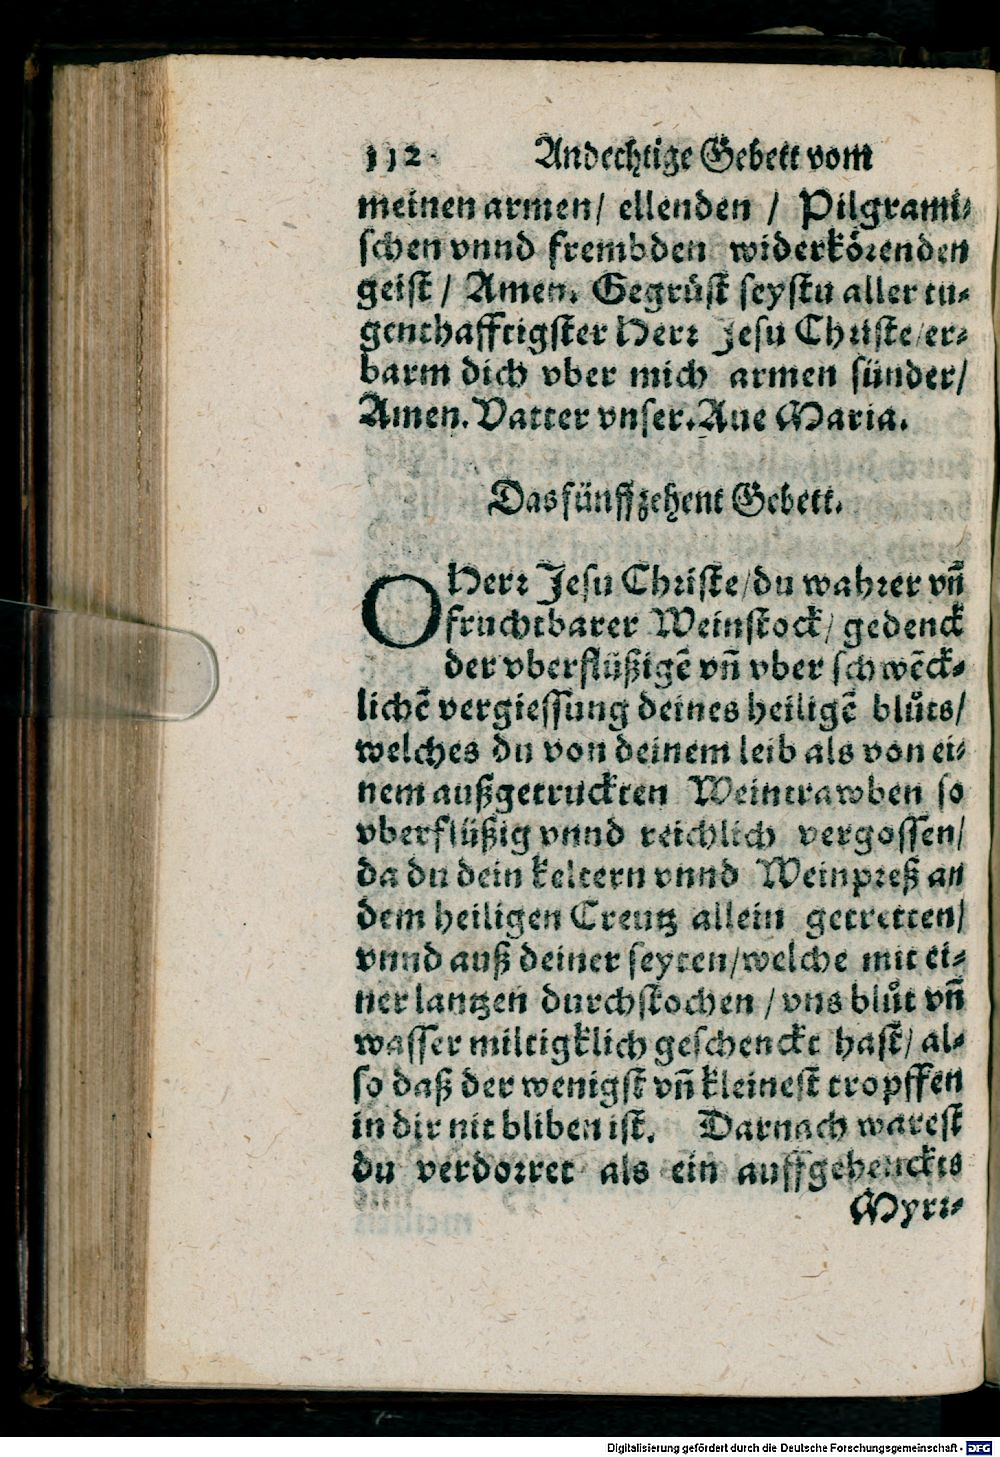 112. Andechtige Gebett vom
meinen armen/ ellenden / Pilgrami-
schen vnnd frembden widerkörenden
geist / Amen. Gegrüst seystu aller tu-
genthafftigster Herr Jesu Christe/er-
barm dich vber mich armen sünder/
Amen. Vatter vnser. Aue Maria.
Das fünffzehent Gebett.
O Herr Jesu Christe/du wahrer vñ
fruchtbarer Weinstock/ gedenck
der vberflüßigẽ vñ vber schwẽck-
lichẽ vergiessung deines heiligẽ blůts/
welches du von deinem leib als von ei-
nem außgetruckten Weintrawben so
vberflüßig vnnd reichlich vergossen/
da du dein keltern vnnd Weinpreß an
dem heiligen Creutz allein getretten/
vnnd auß deiner seyten/welche mit ei-
ner lantzen durchstochen / vns blůt vñ
wasser miltigklich geschenckt hast/ al-
so daß der wenigst vñ kleinest tropffen
in dir nit bliben ist. Darnach warest
du verdorret als ein auffgehenckts
Myrr-
Digitalisierung gefördert durch die Deutsche Forschungsgemeinschaft - DFG